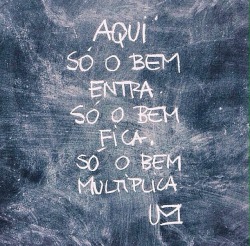 AQUI
SÓ O BEM
ENTRA.
SÓ O BEM
FICA.
SÓ O BEM
MULTIPLICA